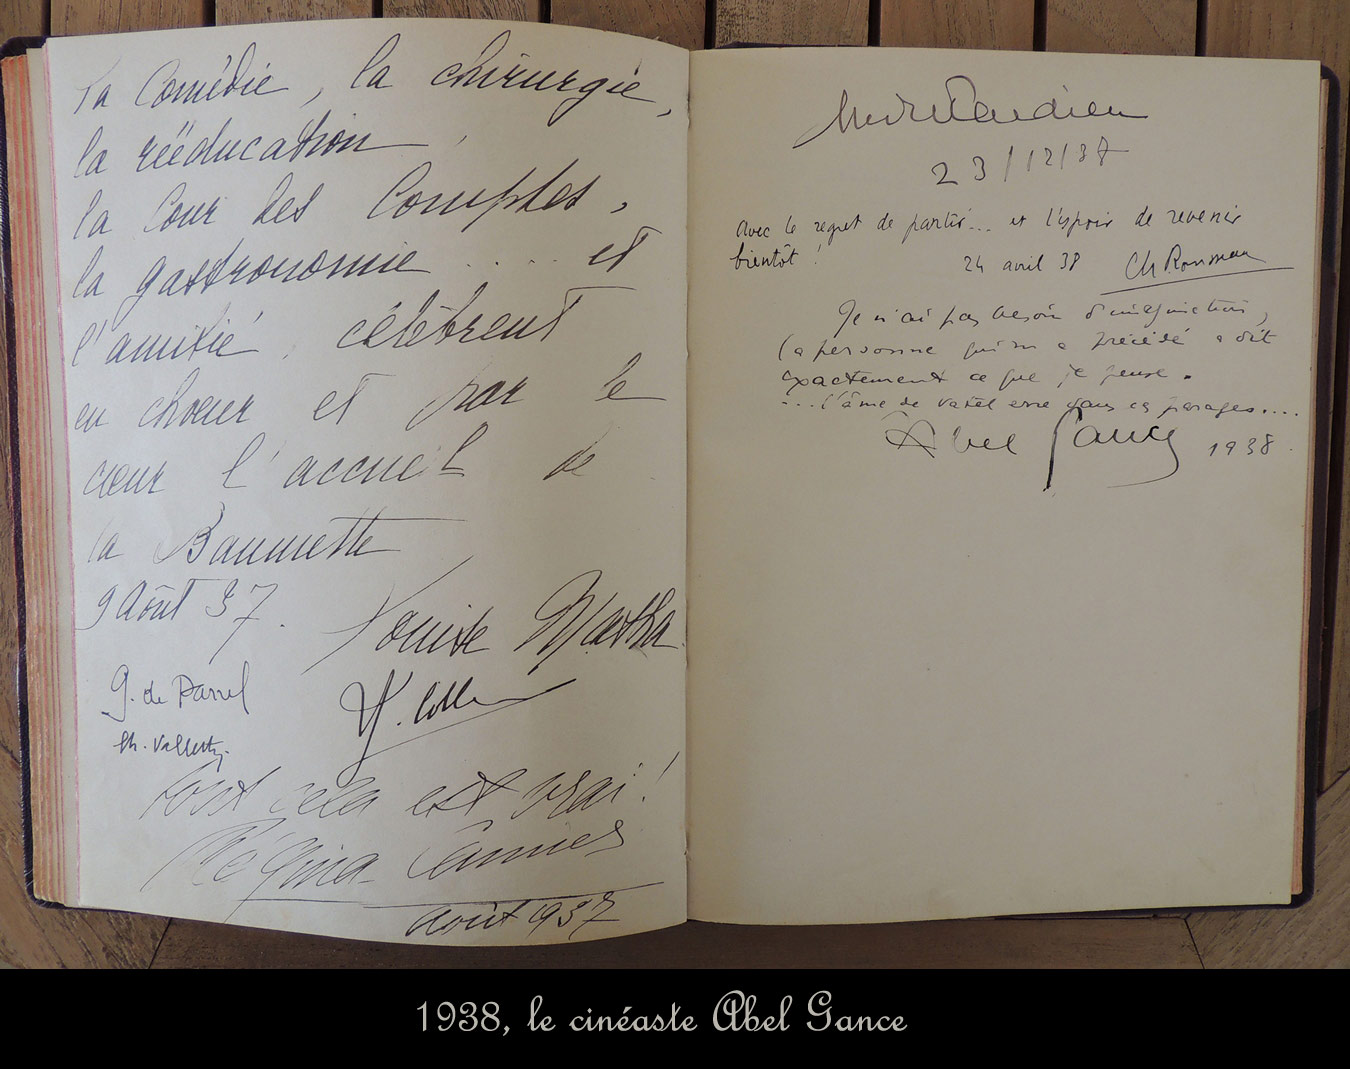 la Comédie, la chirurgie,
la rééducation,
la Cour des Comptes,
la gastronomie ..... et
l'amitié, célèbrent
en choeur et par le
cœur l'accueil de
la Baumette
9 Août 37.
Louise Martha
G. de Parrel
tout cela est vrai!
Régina Camier
août 1937
23/12/37
avec le regret de partir... et l'espoir de revenir
bientôt !
24 avril 38 Ch Rousseau
Je n'ai pas besoin d'imagination,
la personne qui m'a précédé a dit
exactement ce que je pense.
... l'âme de Vatel erre dans ces parages....
Abel Gance 1938.
1938, le cinéaste Abel Gance